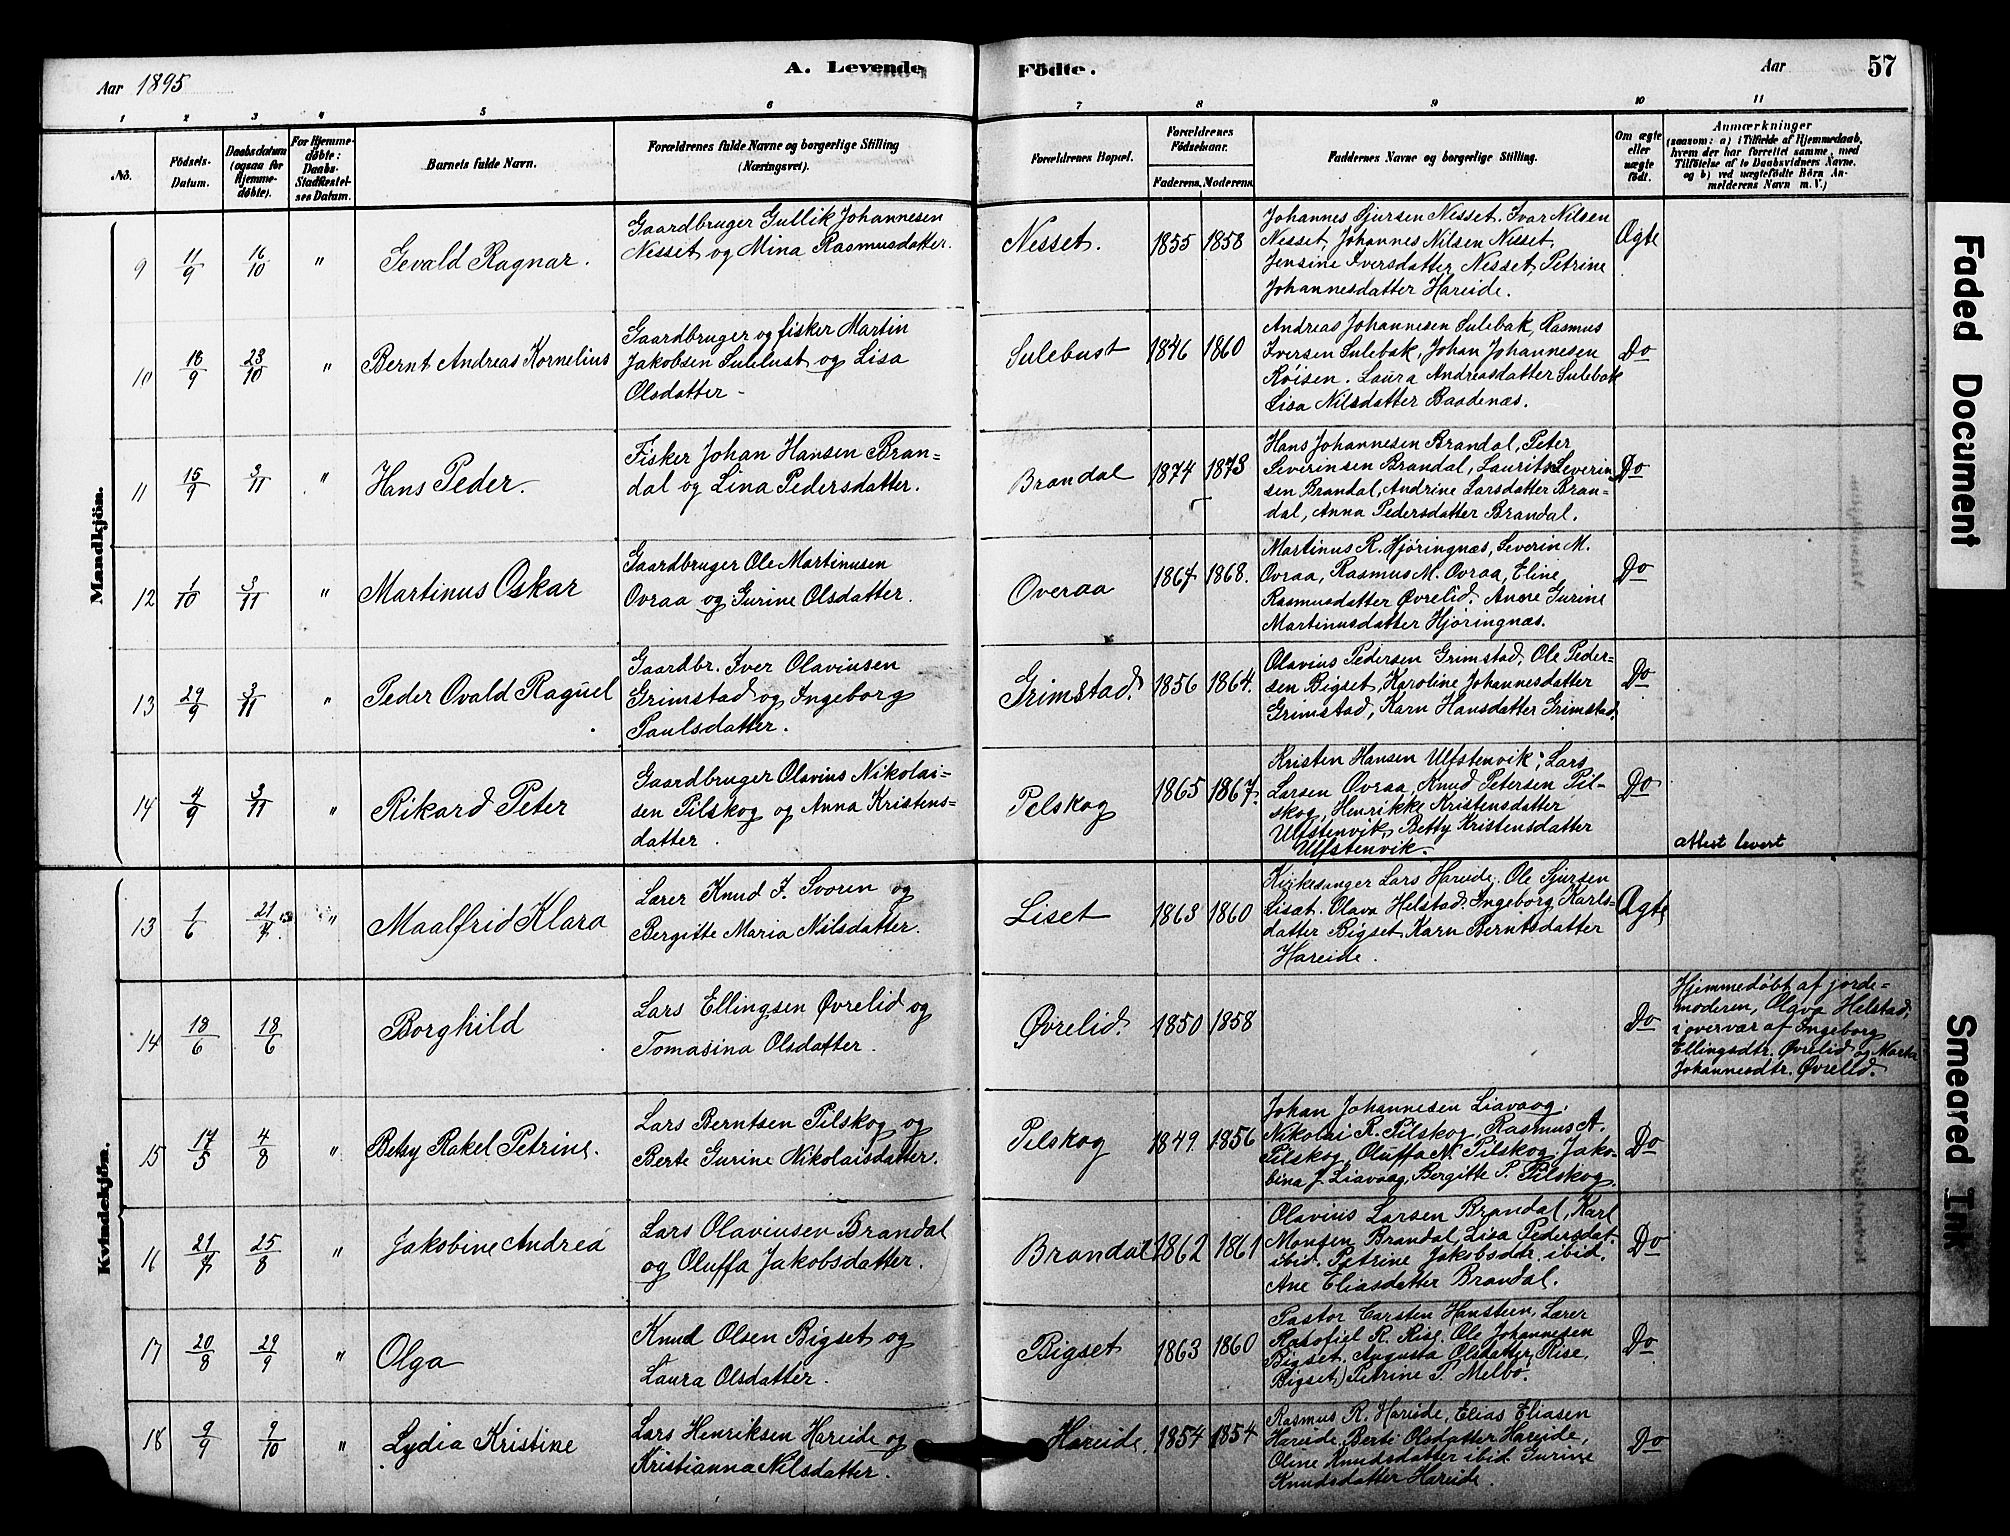 Aar 1895
A. Levende
Födte.
Aar
57
1 2 3 4 5 6 7 8 9 10 11
No.
Födsels-
Datum.
Daabsdatum
(ogsaa for
Hjemme-
döbte).
For Hjemme-
döbte:
Daabs-
Stadfæstel-
ses Datum.
Barnets fulde Navn.
Forældrenes fulde Navne og borgerlige Stilling
(Næringsvei).
Forældrenes Bopæl.
Forældrenes
Födselsaar.
Faderens. Moderens.
Faddernes Navne og borgerlige Stilling.
Om ægte
eller
uægte
födt.
Anmærkninger
(saasom: a) i Tilfælde af Hjemmedaab,
hvem der har forrettet samme, med
Tilföielse af to Daabsvidners Navne.
og b) ved uægtefödte Börn An-
melderens Navn m. V.)
Mandkjön.
9 11/9 16/10 " Gevald Ragnar.
Gaardbruger Gullik Johannesen
Nesset og Mina Rasmusdatter.
Nesset. 1855 1858
Johannes Gjursen Nesset. Ivar Nilsen
Nesset, Johannes Nilsen Nesset,
Jensine Iversdatter Nesset, Petrine
Johannesdatter Hareide.
Ægte
10 16/9 23/10 " Bernt Andreas Kornelius
Gaardbruger og fisker Martin
Jakobsen Sulebust og Lisa
Olsdatter -
Sulebust 1846 1860
Andreas Johannesen Sulebak, Rasmus
Iversen Sulebak, Johan Johannesen
Röisen. Laura Andreasdatter Sulebak
Lisa Nilsdatter Baadenæs.
Do
11 15/9 3/11 " Hans Peder.
Fisker Johan Hansen Bran=
dal og Lina Pedersdatter.
Brandal 1874 1873
Hans Johannesen Brandal, Peter
Severinsen Brandal, Laurits Severin
sen Brandal, Andrine Larsdatter Bran=
dal, Anna Pedersdatter Brandal.
Do
12 1/10 3/11 " Martinus Oskar
Gaardbruger Ole Martinusen
Ovraa og Gurine Olsdatter.
Overaa 1867 1868.
Martinus R. Hjøringnæs, Severin M.
Ovraa, Rasmus M. Ovraa, Eline
Rasmusdatter Øvrelid. Anne Gurine
Martinusdatter Hjøringnæs.
Do
13 29/9 3/11 " Peder Ovald Raguel
Gaardbr. Iver Olaviusen
Grimstad og Ingeborg
Paulsdatter.
Grimstad 1856 1864.
Olavius Pedersen Grimstad, Ole Peder=
sen Bigset, Karoline Johannesdatter
Grimstad, Karn Hansdatter Grimstad.
Do
14 4/9 3/11 " Rikard Peter
Gaardbruger Olavius Nikolai=
sen Pilskog og Anna Kristens=
datter.
Pelskog 1865 1867.
Kristen Hansen Ulfstenvik; Lars
Larsen Ovraa, Knud Petersen Pil=
skog, Henrikke Kristensdatter
Ulfstenvik, Betty Kristensdatter
Ulfstenvik.
Do
attest levert
Kvindekjön.
13 1/6 21/7 " Maalfrid Klara
Lærer Knud J. Svoren og
Bergitte Maria Nilsdatter.
Liset 1863 1860
Kirkesanger Lars Hareide, Ole Sjursen
Liset. Olava Helstad. Ingeborg Karls=
datter Bigset, Karn Berntsdatter
Hareide.
Ægte
14 18/6 18/6 Borghild
Lars Ellingsen Øvrelid og
Tomasina Olsdatter.
Øvrelid 1850 1858
Do
Hjemmedøbt af jorde=
moderen, Olava Helstad,
i overvær af Ingeborg
Ellingsdtr. Øvrelid og Marta
Johannesdtr. Øvrelid.
15 17/5 4/8 " Betsy Rakel Petrine.
Lars Berntsen Pilskog og
Berte Gurine Nikolaisdatter.
Pelskog 1849. 1856
Johan Johannesen Liavaag,
Nikolai R. Pilskog, Rasmus A.
Pilskog, Oluffa N. Pilskog, Jako=
bina J. Liavaag, Bergitte P. Pilskog.
Do
16 21/7 25/8 " Jakobine Andrea
Lars Olaviusen Brandal
og Oluffa Jakobsdatter.
Brandal 1862 1861
Olavius Larsen Brandal, Karl
Monsen Brandal, Lisa Pedersdat.
ibid. Petrine Jakobsdr. ibid.
Ane Eliasdatter Brandal.
Do
17 20/8 29/9 " Olga
Knud Olsen Bigset og
Laura Olsdatter.
Bigset 1863 1860
Pastor Carsten Hansteen, Lærer
R. Rise. Ole Johannesen
Bigset, Augusta Olsdatter Rise,
Bigset) Petrine P. Melbö.
Do
18 9/9 9/10 " Lydia Kristine
Lars Henriksen Hareide og
Kristianna Nilsdatter.
Hareide. 1854 1854
Rasmus R. Hareide, Elias Eliasen
Hareide, Berte Olsdatter Hareide,
Oline Knudsdatter ibid. Gurine
Knudsdatter Hareide.
Do
Faded Document
Smeared Ink